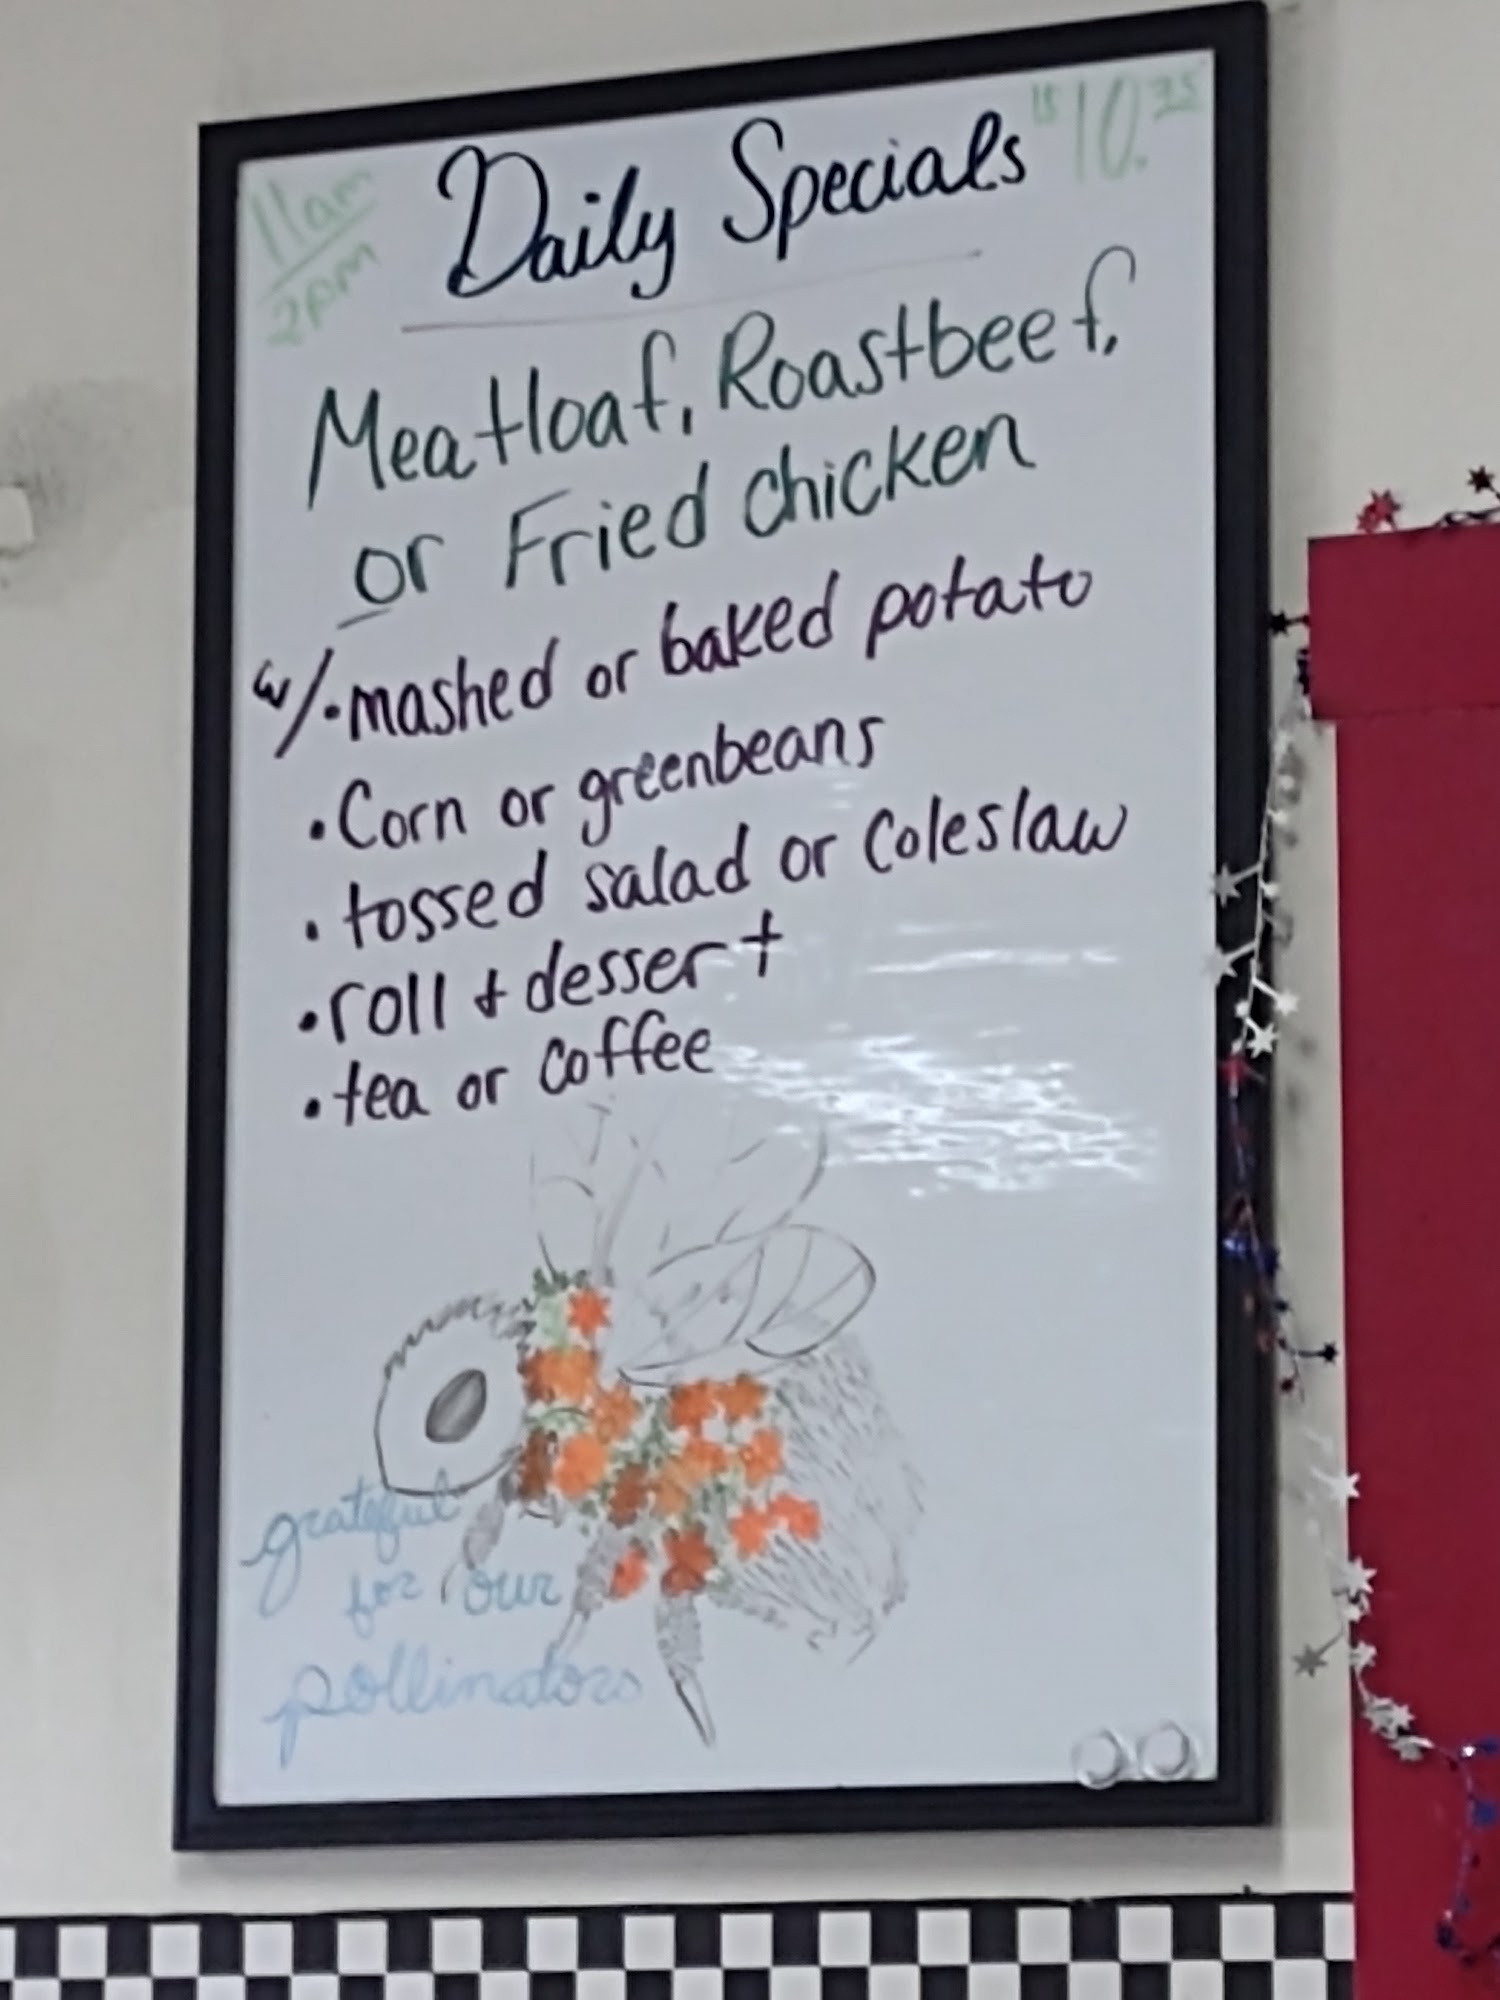 Daily Specials
$10.35
11am
2pm
Meatloaf, Roastbeef,
or Fried chicken
w/ • mashed or baked potato
• Corn or greenbeans
• tossed salad or Coleslaw
• roll + dessert
• tea or coffee
grateful
for our
pollinators